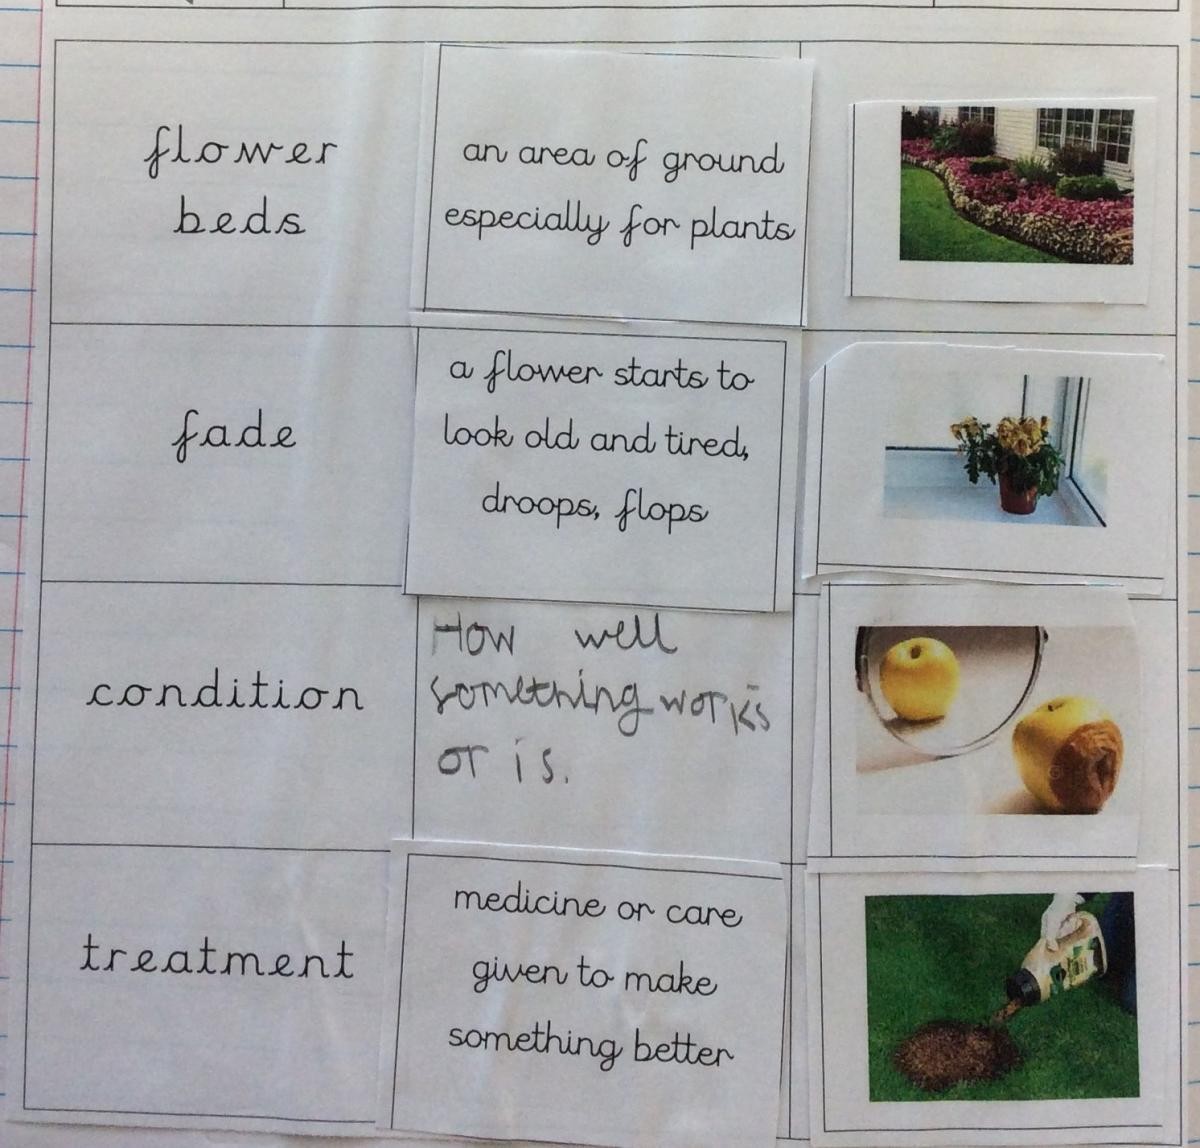 flower
beds
an area of ground
especially for plants
fade
a flower starts to
look old and tired,
droops, flops
condition
How well
something works
or is.
treatment
medicine or care
given to make
something better